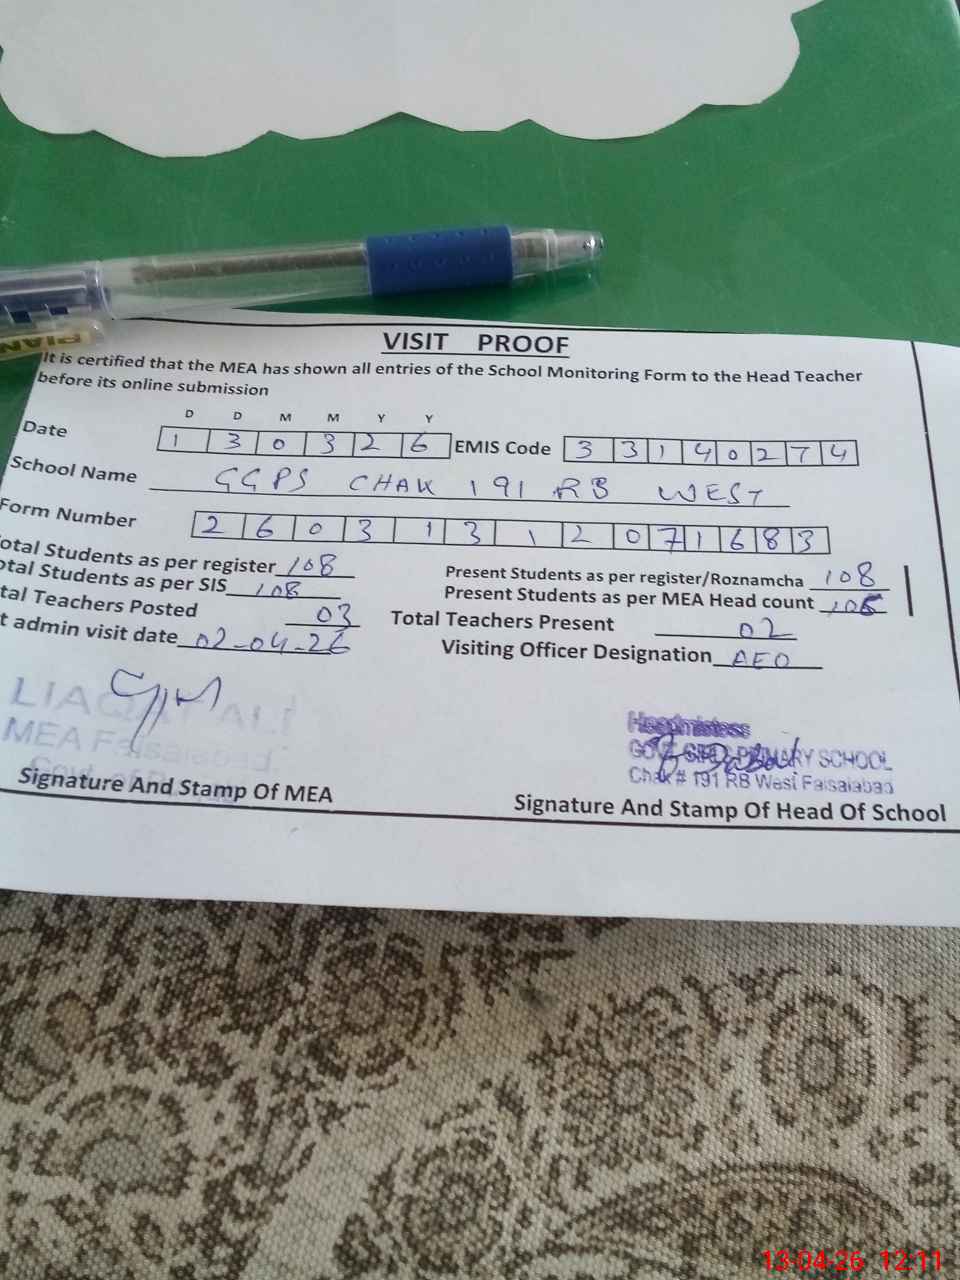 PIAN
VISIT PROOF
It is certified that the MEA has shown all entries of the School Monitoring Form to the Head Teacher
before its online submission
D D M M Y Y
Date 1 3 0 3 2 6 EMIS Code 3 3 1 4 0 2 7 4
School Name GGPS CHAK 191 RB WEST
Form Number 2 6 0 3 1 3 1 2 0 7 1 6 8 3
otal Students as per register 108 Present Students as per register/Roznamcha 108
otal Students as per SIS 108 Present Students as per MEA Head count 106
tal Teachers Posted 03 Total Teachers Present 02
t admin visit date 02-04-26 Visiting Officer Designation AEO
LIAQAT ALI
MEA Faisalabad
Headmistess
GOVT GIRLS PRIMARY SCHOOL
Chak # 191 RB West Faisalabad
Signature And Stamp Of MEA Signature And Stamp Of Head Of School
13-04-26 12:11